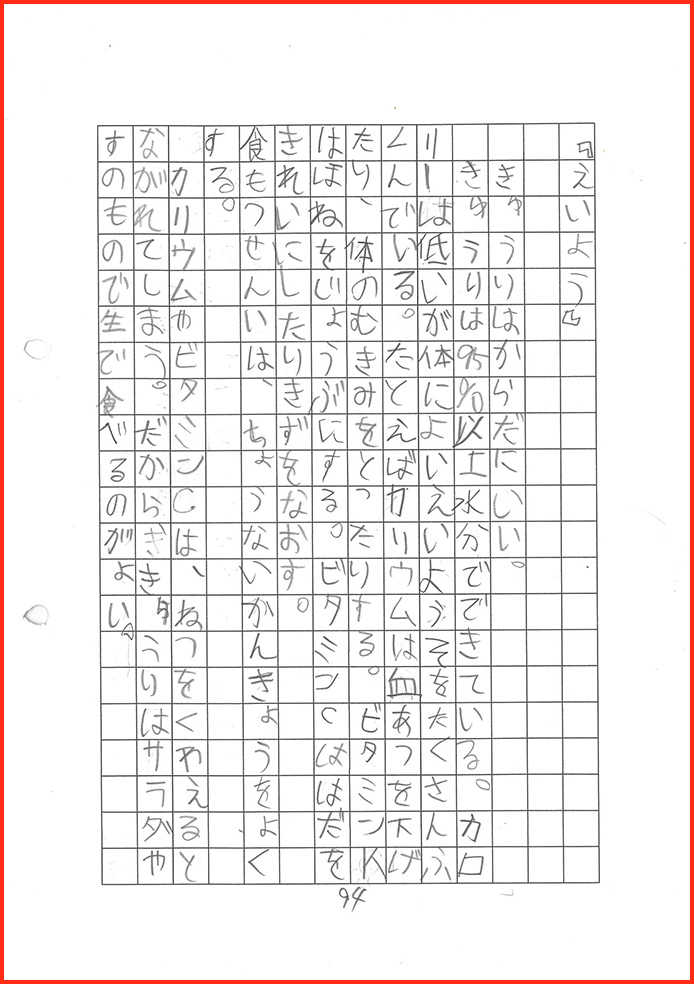 「えいよう」
きゅうりはからだにいい。
きゅうりは95%以上水分でできている。カロ
リーは低いが体によいえいようそをたくさんふ
くんでいる。たとえばカリウムは血あつを下げ
たり、体のむきみをとったりする。ビタミンK
はほねをじょうぶにする。ビタミンCははだを
きれいにしたりきずをなおす。
食もつせんいは、ちょうないかんきょうをよく
する。
カリウムやビタミンCは、ねつをくわえると
ながれてしまう。だからぎきゅうりはサラダや
すのもので生で食べるのがよい。
94